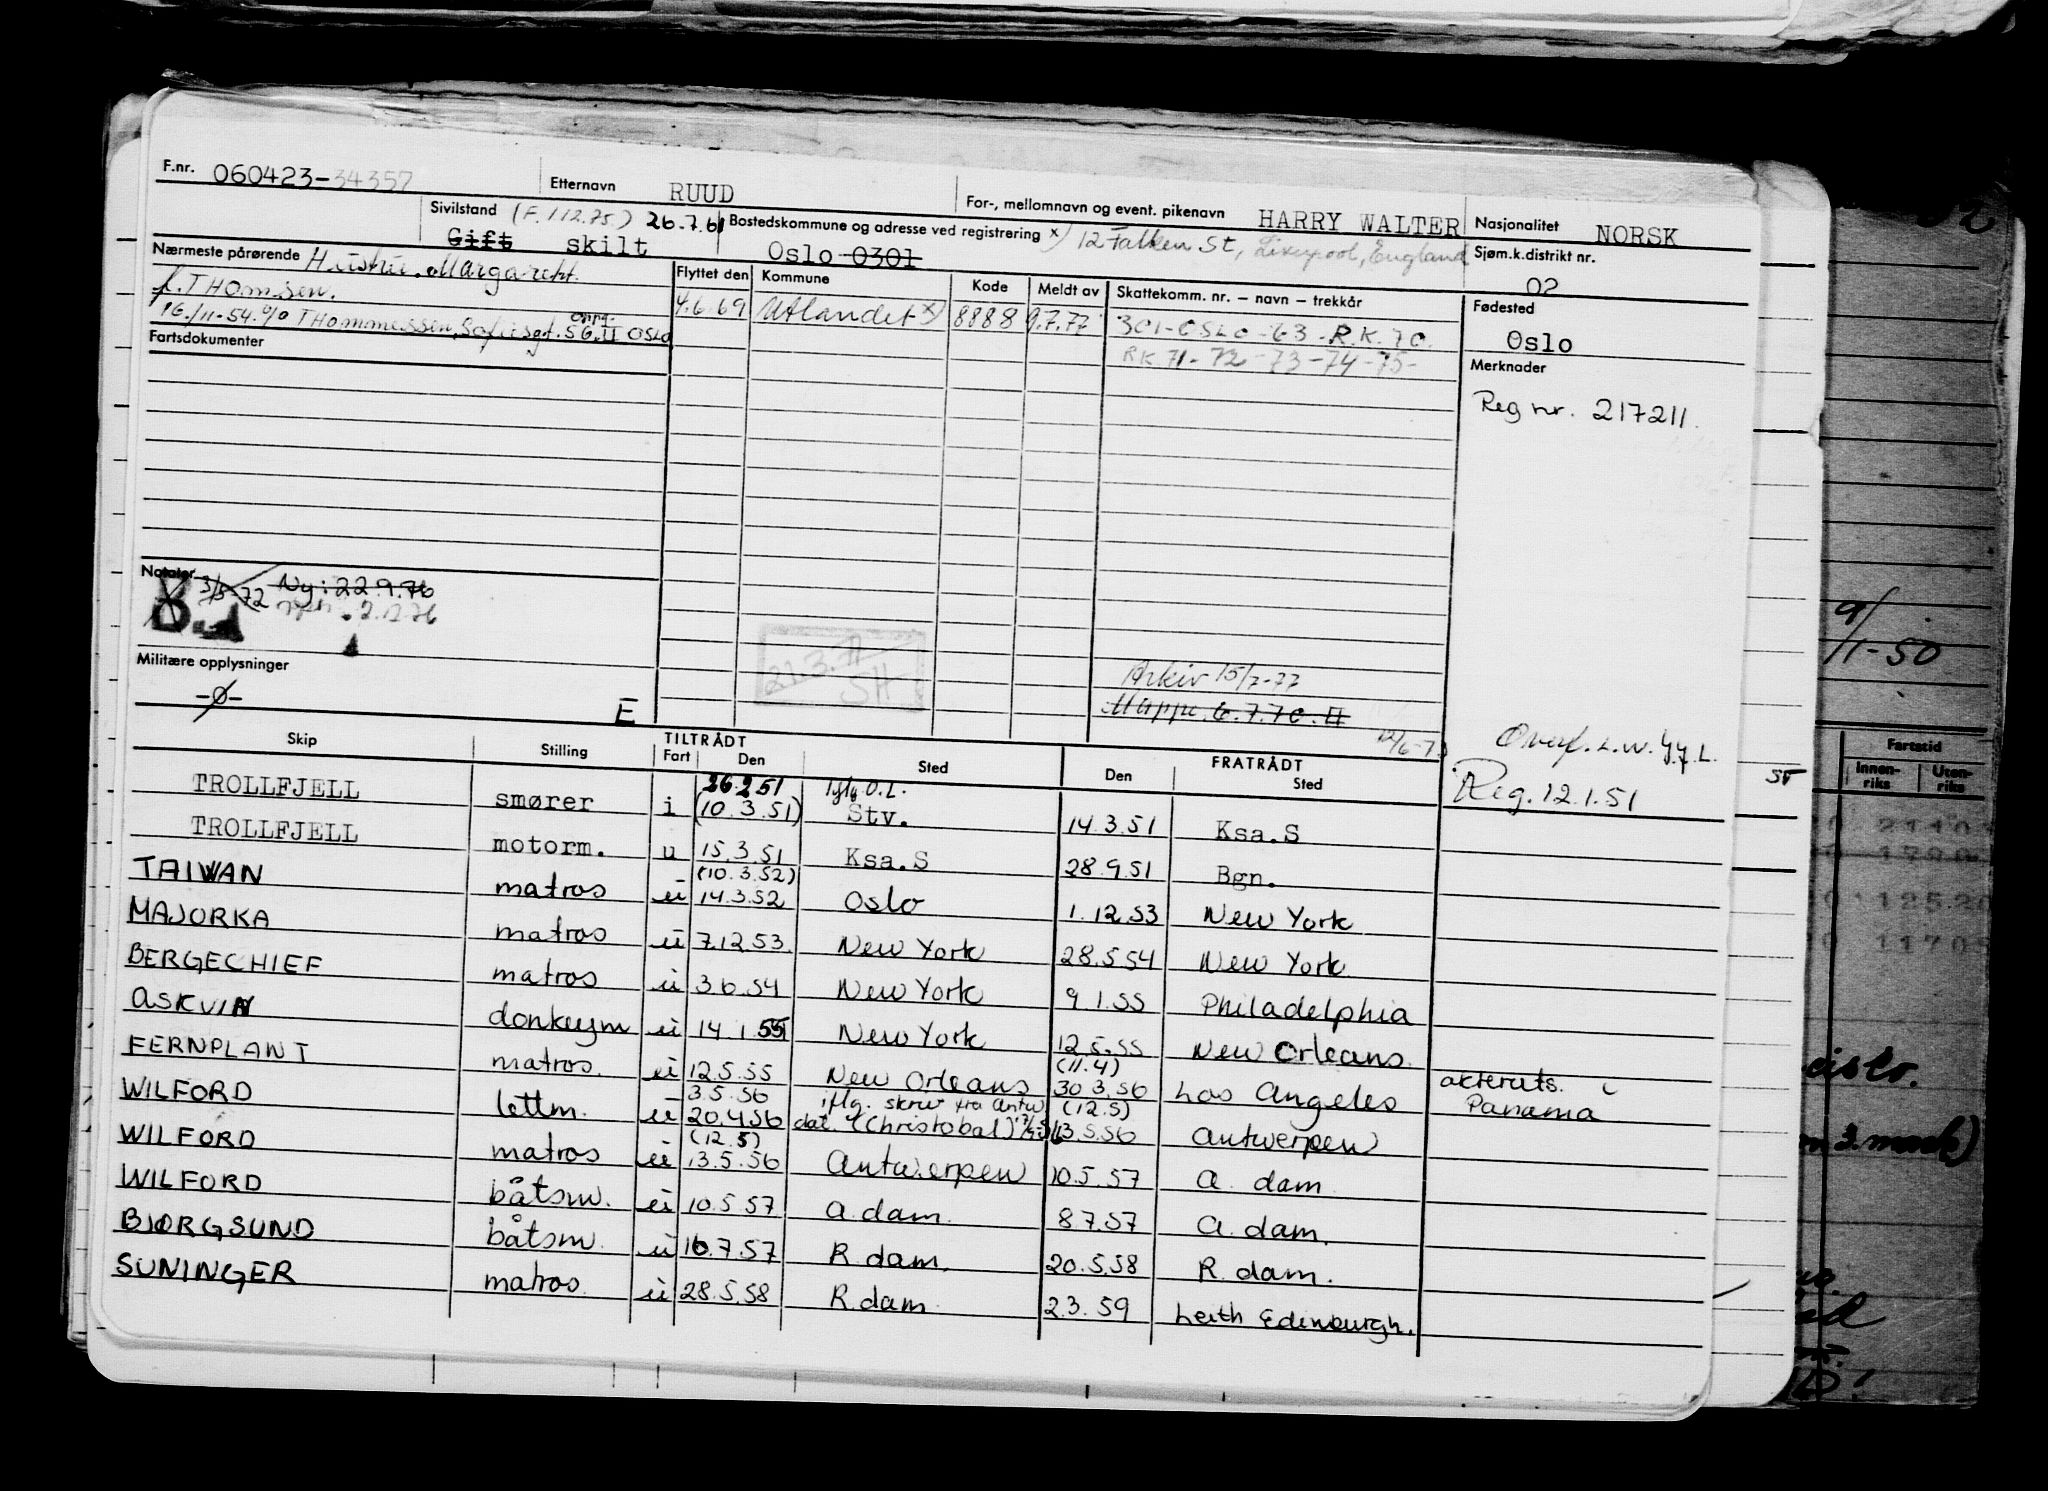 F.nr. 060423-34357 Etternavn RUUD For-, mellomnavn og event. pikenavn HARRY WALTER Nasjonalitet NORSK
Sivilstand (F. 1.12.75) 26.7.61 Gift skilt Bostedskommune og adresse ved registrering x) Oslo 0301 12 Falken St, Liverpool, England Sjøm.k.distrikt nr. 02
Nærmeste pårørende Hustru. Margareth.
f. THOMSEN.
16/11-54. c/o THommessen, Sofiesgt. 56. II oppg. OSLO
Flyttet den Kommune Kode Meldt av Skattekomm. nr. – navn – trekkår Fødested
4.6.69 Utlandet x) 8888 9.7.77 301-OSLO-63-R.K.70. Oslo
RK 71-72-73-74-75-
Fartsdokumenter
Merknader
Reg nr. 217211.
Notater 3/3-72 Ny: 22.9.76
2.12.76
21.3.77
SH
Militære opplysninger
-0-
E
Arkiv 15/7-77
Mappe. 6.7.70. II
Overf. L.W. 4/7 L.
Reg. 12.1.51
Skip Stilling TILTRÅDT Fart Den Sted FRATRÅDT Den Sted
TROLLFJELL smører i 26.2.51 (10.3.51) iflg O.L. Stv. 14.3.51 Ksa.S
TROLLFJELL motorm. u 15.3.51 Ksa.S 28.9.51 Bgn.
TAIWAN matros u (10.3.52) 14.3.52 Oslo 1.12.53 New York
MAJORKA matros u 7.12.53. New York 28.5.54 New York
BERGECHIEF matros u 3.6.54 New York 9.1.55 Philadelphia
ASKVIN donkeym u 14.1.55 New York 12.5.55 New Orleans.
FERNPLANT matros. u 12.5.55 New Orleans (11.4) 30.3.56 Los Angeles akteruts. Panama
WILFORD lettm. u 3.5.56 20.4.56 iflg. skriv fra Antw dat. (Christobal) (12.5) 13.5.56 Antwerpen
WILFORD matros u (12.5) 13.5.56 Antwerpen 10.5.57 A. dam
WILFORD båtsm. u 10.5.57 A. dam. 8.7.57 A. dam.
BJØRGSUND båtsm. u 16.7.57 R. dam. 20.5.58 R. dam.
SUNINGER matros. u 28.5.58 R. dam. 2.3.59 Leith Edinburgh.
9/1-50
Fartstid
Innen-riks Uten-riks